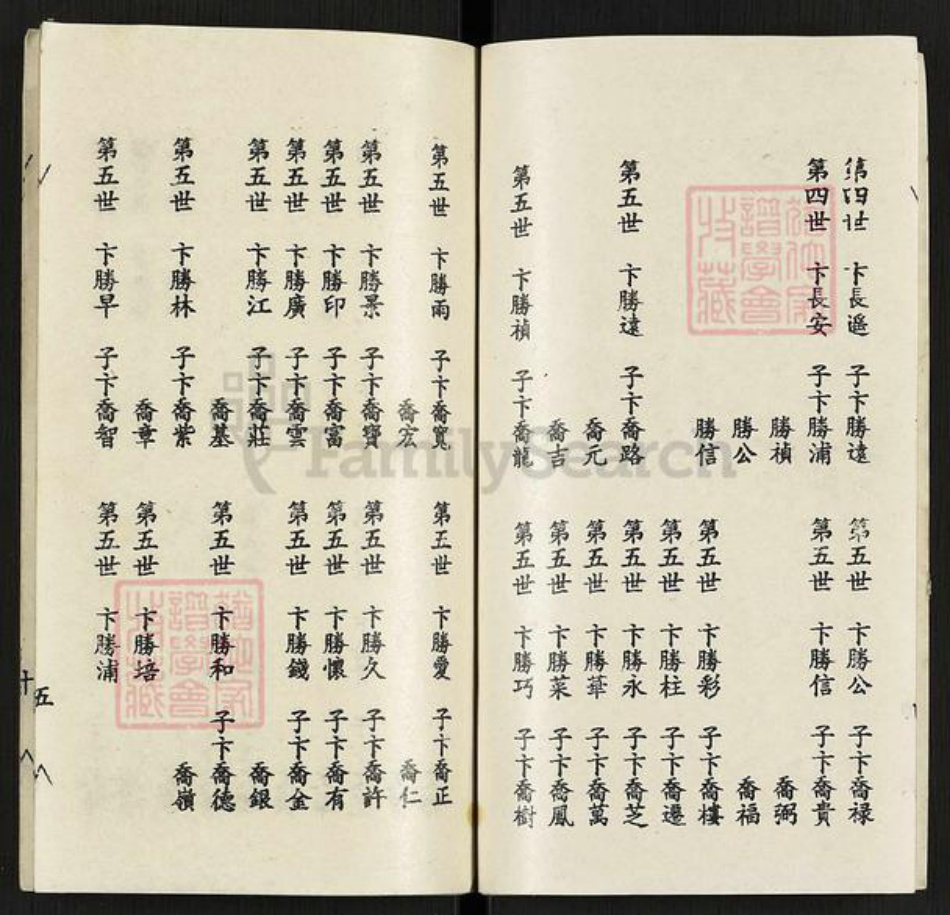 第四世 卞長遥 子卞勝遠
第四世 卞長安 子卞勝浦
勝禎
勝公
勝信
第五世 卞勝遠 子卞喬路
喬元
喬吉
第五世 卞勝禎 子卞喬龍
第五世 卞勝公 子卞喬禄
第五世 卞勝信 子卞喬貴
喬弼
喬福
第五世 卞勝彩 子卞喬樓
第五世 卞勝柱 子卞喬遷
第五世 卞勝永 子卞喬芝
第五世 卞勝華 子卞喬萬
第五世 卞勝菜 子卞喬鳳
第五世 卞勝巧 子卞喬樹
第五世 卞勝雨 子卞喬寬
喬宏
第五世 卞勝景 子卞喬寶
第五世 卞勝印 子卞喬富
第五世 卞勝廣 子卞喬雲
第五世 卞勝江 子卞喬莊
喬基
第五世 卞勝林 子卞喬紫
喬章
第五世 卞勝早 子卞喬智
第五世 卞勝愛 子卞喬正
喬仁
第五世 卞勝久 子卞喬許
第五世 卞勝懷 子卞喬有
第五世 卞勝錢 子卞喬金
喬銀
第五世 卞勝和 子卞喬德
喬嶺
第五世 卞勝培
第五世 卞勝浦
五
FamilySearch